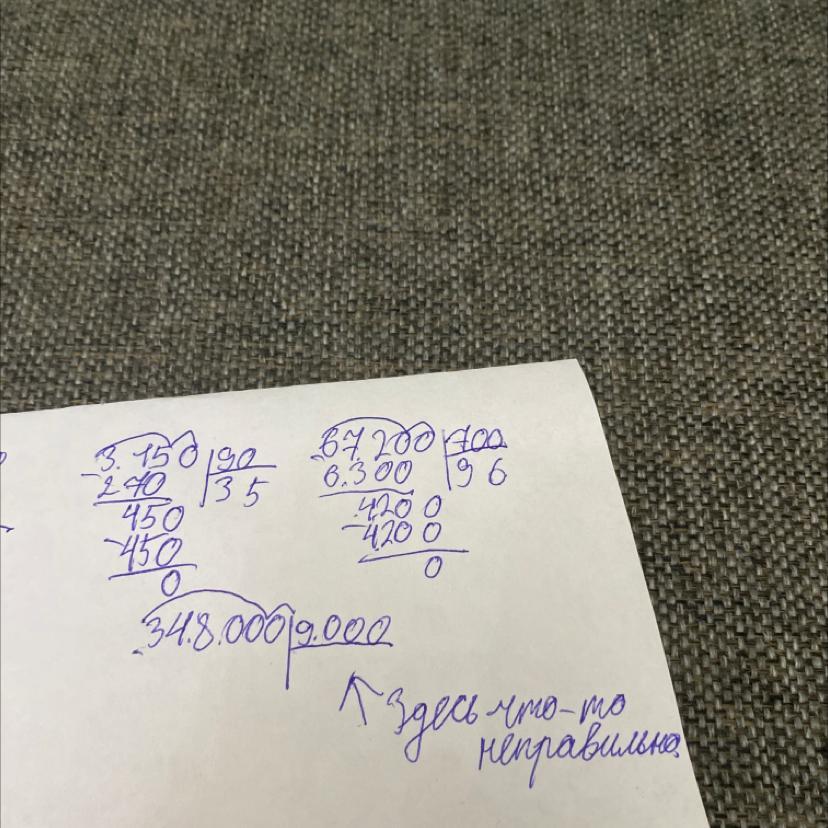 3.150 | 90
270 | 35
450
450
0
67.200 | 700
6.300 | 96
4200
4200
0
348.000 | 9.000
Здесь что-то
неправильно